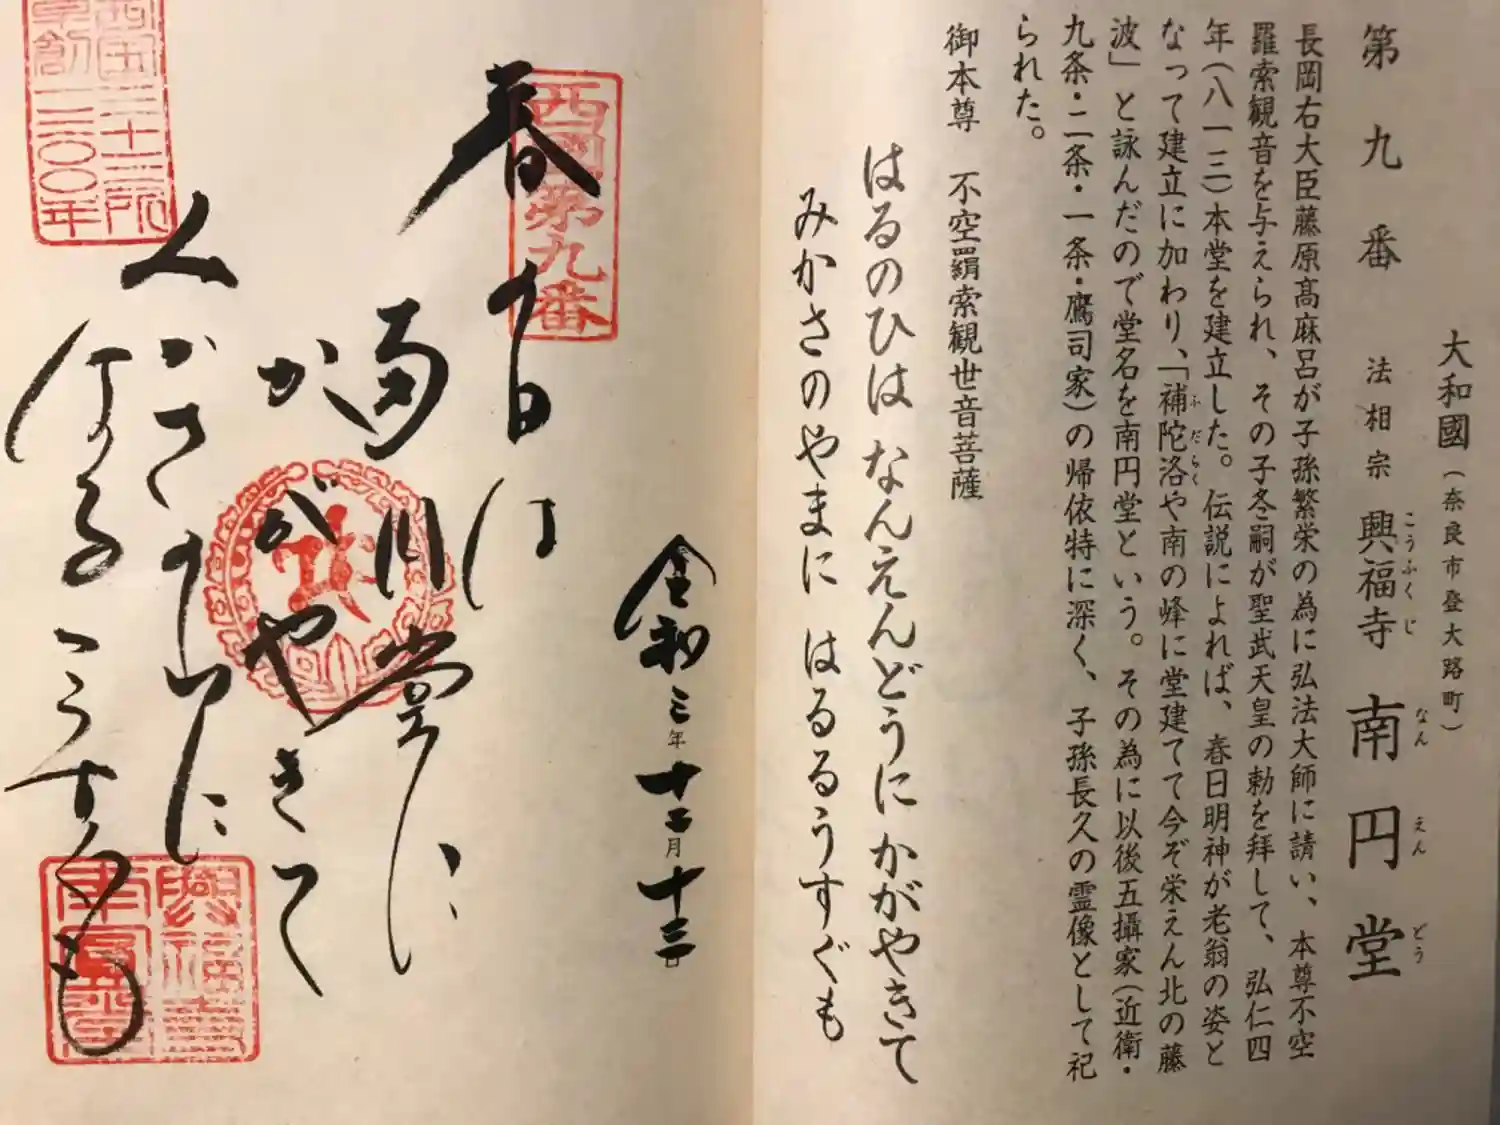 大和國（奈良市登大路町）
第九番 法相宗 興福寺 南円堂
こうふくじ なんえんどう
長岡右大臣藤原髙麻呂が子孫繁栄の為に弘法大師に請い、本尊不空
羅索観音を与えられ、その子冬嗣が聖武天皇の勅を拜して、弘仁四
年（八一三）本堂を建立した。伝説によれば、春日明神が老翁の姿と
なって建立に加わり、「補陀洛や南の峰に堂建てて今ぞ栄えん北の藤
ふだらく
波」と詠んだので堂名を南円堂という。その為に以後五攝家（近衛・
九条・二条・一条・鷹司家）の帰依特に深く、子孫長久の霊像として祀
られた。
御本尊 不空羂索観世音菩薩
はるのひは なんえんどうにかがやきて
みかさのやまに はるるうすぐも
令和三年十二月十三日
西国第九番
春の日は
南円堂に
かがやきて
三かさのやまに
はるるうすぐも
西国三十三所
草創一三〇〇年
興福寺
南円堂